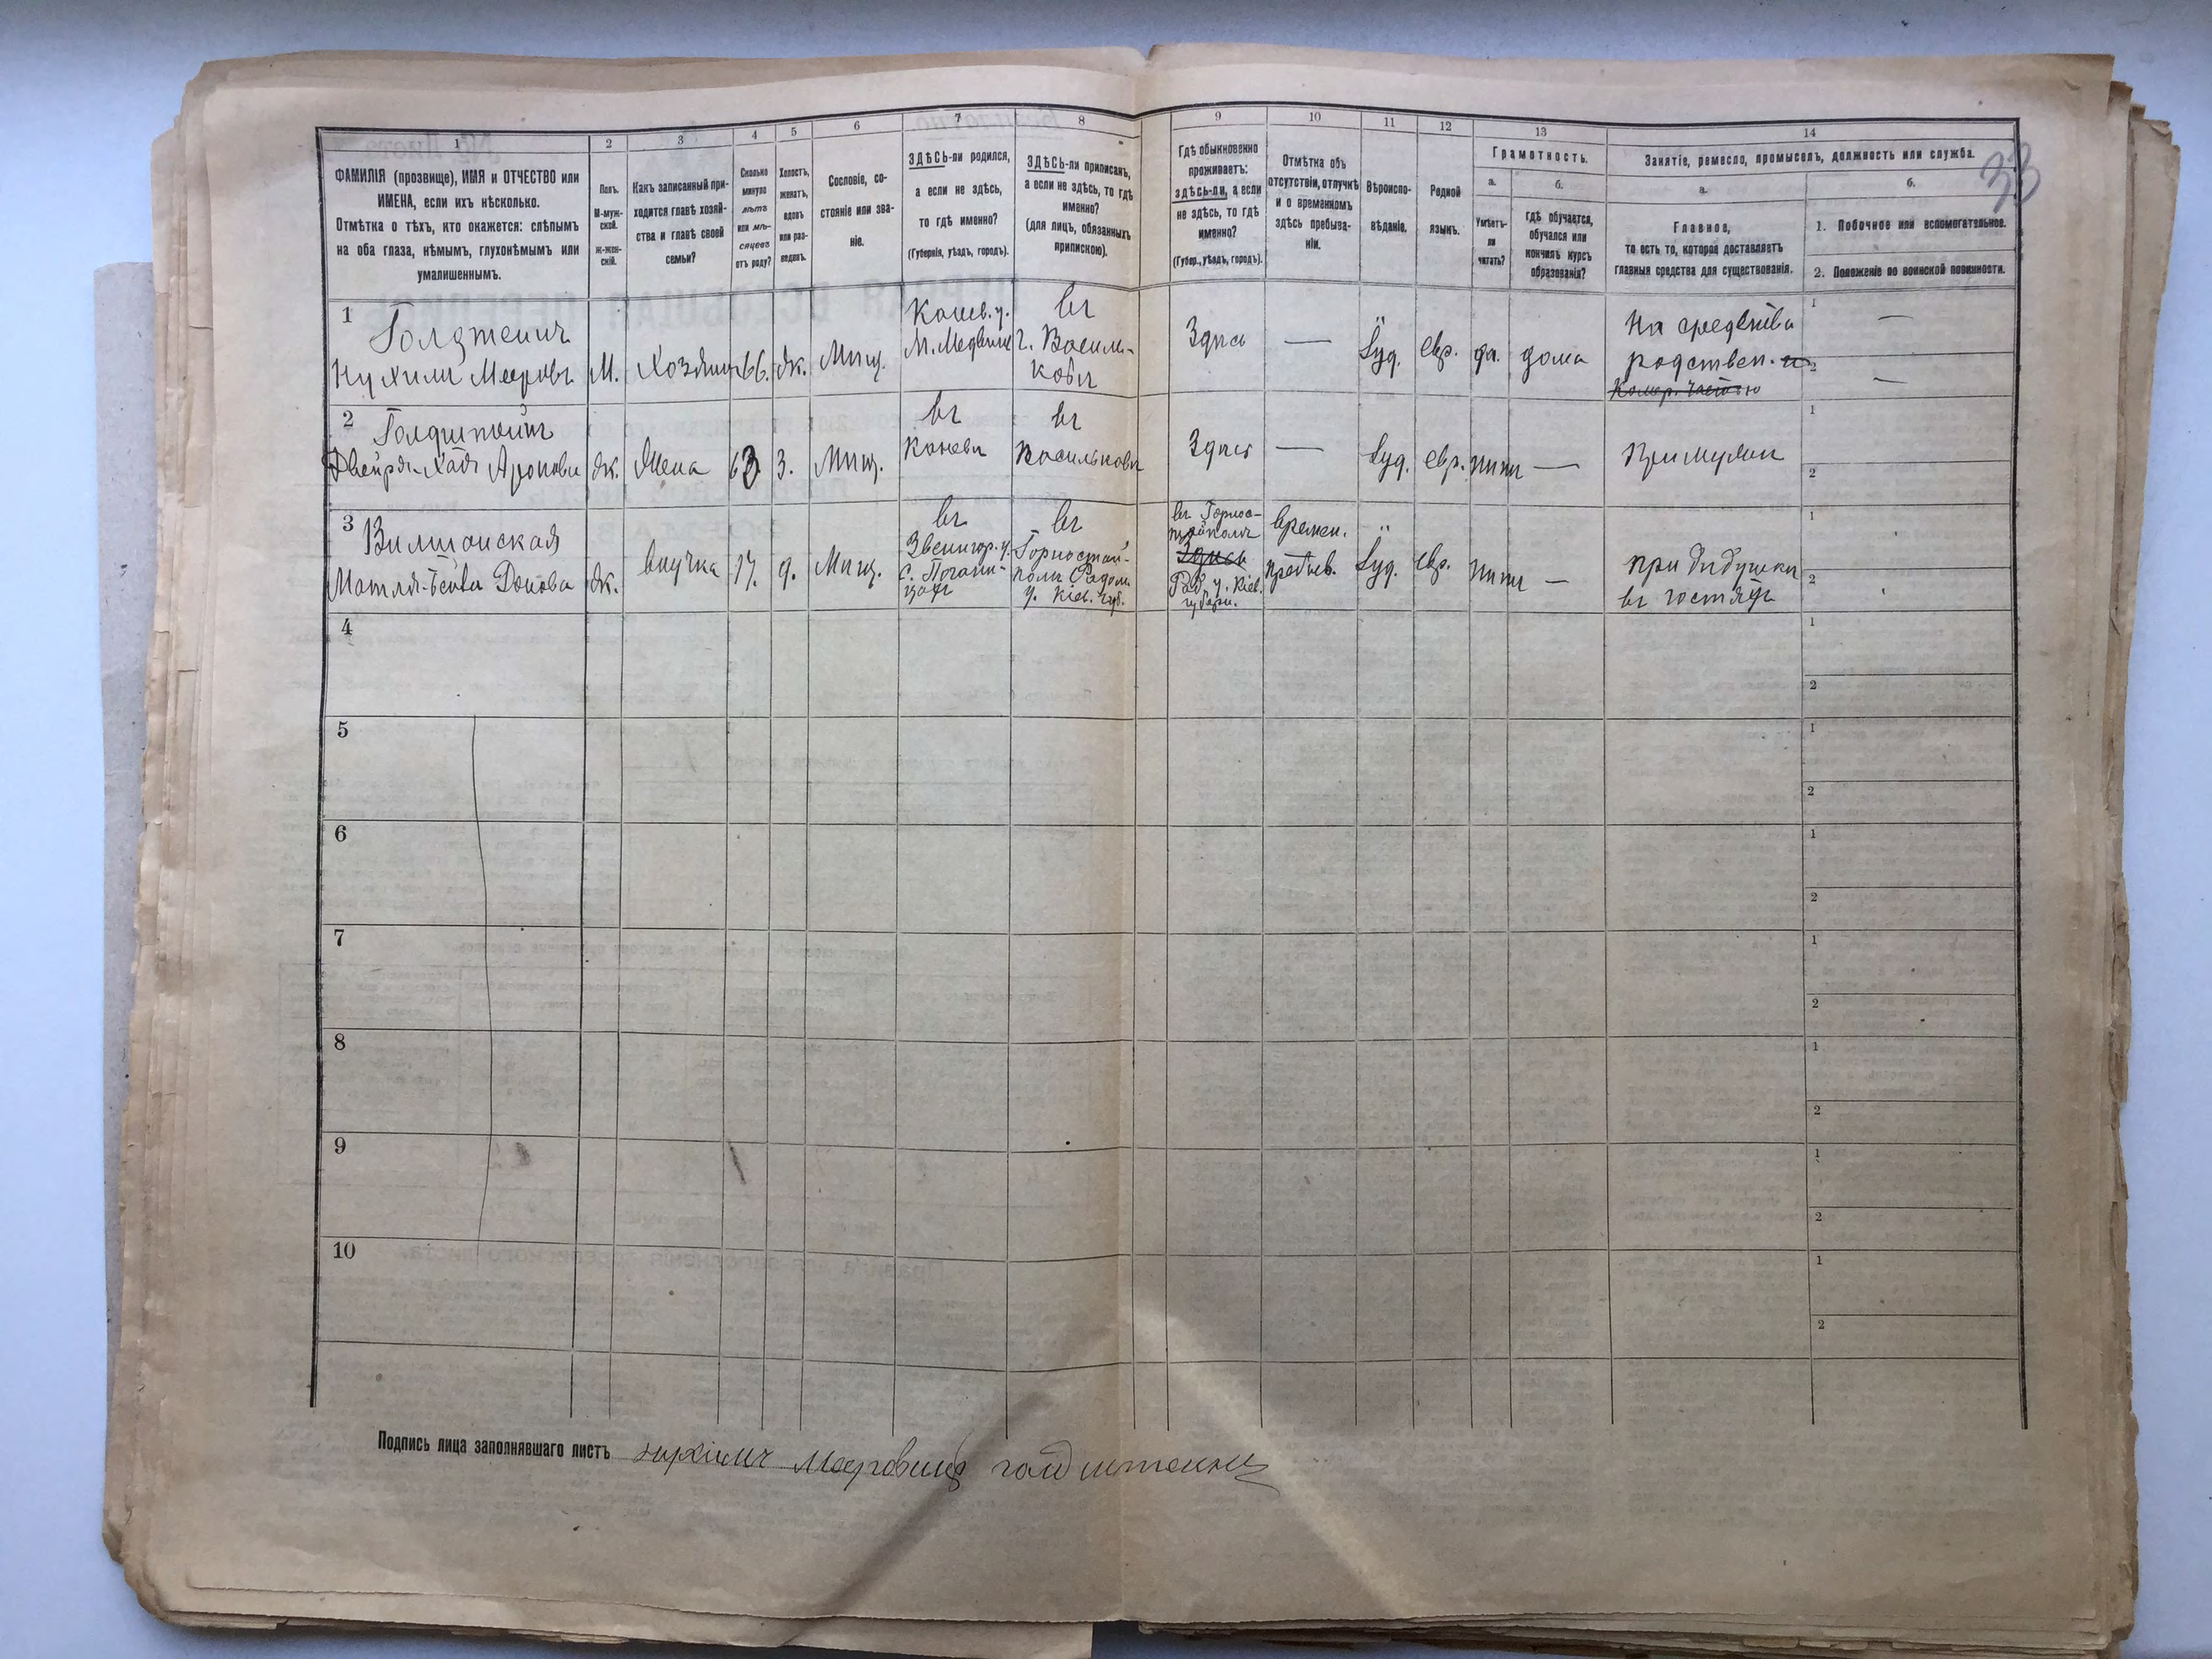 33
1 2 3 4 5 6 7 8 9 10 11 12 13 14
ФАМИЛІЯ (прозвище), ИМЯ и ОТЧЕСТВО или
ИМЕНА, если ихъ нѣсколько.
Отмѣтка о тѣхъ, кто окажется: слѣпымъ
на оба глаза, нѣмымъ, глухонѣмымъ или
умалишеннымъ.
Полъ.
М-муж-
ской.
Ж-жен-
скій.
Какъ записанный при-
ходится главѣ хозяй-
ства и главѣ своей
семьи?
Сколько
минуло
лѣтъ
или мѣ-
сяцевъ
отъ роду?
Холостъ,
женатъ,
вдовъ
или раз-
веденъ.
Сословіе, со-
стояніе или зва-
ніе.
ЗДѢСЬ-ли родился,
а если не здѣсь,
то гдѣ именно?
(Губернія, уѣздъ, городъ).
ЗДѢСЬ-ли приписанъ,
а если не здѣсь, то гдѣ
именно?
(для лицъ, обязанныхъ
припискою).
Гдѣ обыкновенно
проживаетъ:
здѣсь-ли, а если
не здѣсь, то гдѣ
именно?
(Губер., уѣздъ, городъ).
Отмѣтка объ
отсутствіи, отлучкѣ
и о временномъ
здѣсь пребыва-
ніи.
Вѣроиспо-
вѣданіе.
Родной
языкъ.
Грамотность.
а.
Умѣетъ-
ли
читать?
б.
гдѣ обучается,
обучался или
кончилъ курсъ
образованія?
Занятіе, ремесло, промыселъ, должность или служба.
а.
Главное,
то есть то, которое доставляетъ
главныя средства для существованія.
б.
1. Побочное или вспомогательное.
2. Положеніе по воинской повинности.
1
Нухимъ Мееровъ
М.
Хозяинъ
66.
ж.
Мѣщ.
Канев. у.
въ
г. Василь-
ковѣ
Здѣсь
—
Іуд.
евр.
да.
дома
На средства
родствен.
1 —
2 —
2
Голдштейнъ
Двейра-Хая Аронова
ж.
Жена
63
з.
Мѣщ.
въ
Каневѣ
въ
Васильковѣ
Здѣсь
—
Іуд.
евр.
нѣтъ
—
При мужѣ
1
2
3
ж.
внучка
17.
д.
Мѣщ.
въ
Звенигор. у.
въ
Горностай-
полѣ Радом.
у. Кіев. губ.
въ Горнос-
тайполѣ
Здѣсь
Рад. у. Кіев.
губерн.
времен.
пребыв.
Іуд.
евр.
нѣтъ
—
при дѣдушкѣ
въ гостяхъ
1
2
4
1
2
5
1
2
6
1
2
7
1
2
8
1
2
9
1
2
10
1
2
Подпись лица заполнявшаго листъ нухимъ Мееровичъ голдштейнъ